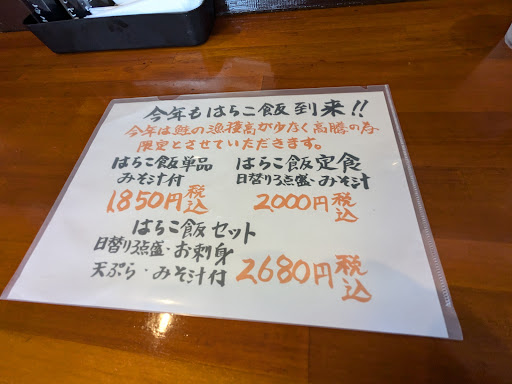 今年もはらこ飯到来!!
今年は鮭の漁穫高が少なく高騰の為
限定とさせていただきます。
はらこ飯単品
みそ汁付
1,850円税込
はらこ飯定食
日替り3点盛・みそ汁
2,000円税込
はらこ飯セット
日替り3点盛・お刺身
天ぷら・みそ汁付
2,680円税込